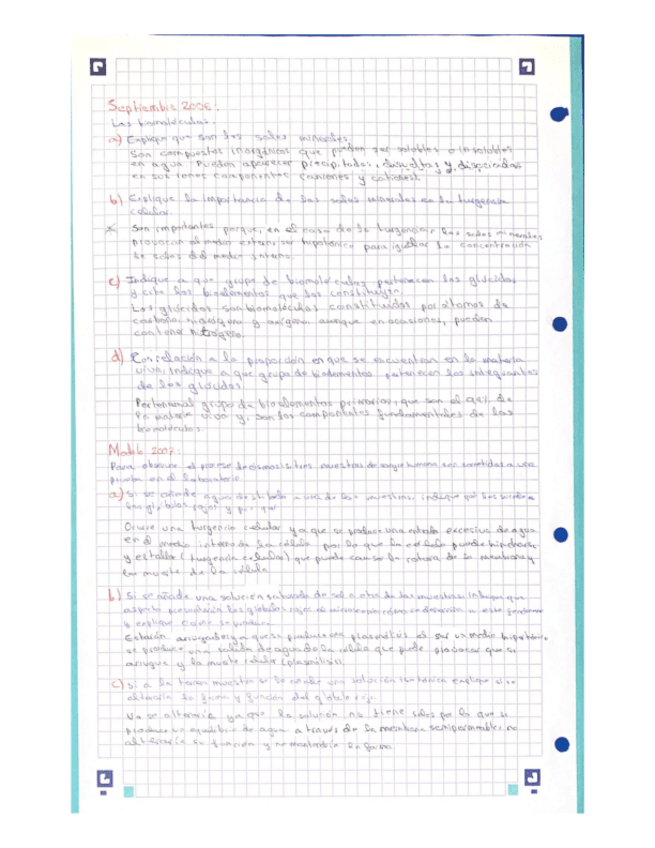 Septiembre 2006:
Las biomoléculas.
a) Explique que son las sales minerales.
Son compuestos inorgánicos que pueden ser solubles o insolubles
en agua. Pueden aparecer precipitadas, disueltas y disociadas
en sus iones componentes (aniones y cationes).
b) Explique la importancia de las sales minerales en la turgencia
celular.
Son importantes porque, en el caso de la turgencia, las sales minerales
provocan al medio externo ser hipotónico para igualar la concentración
de sales del medio interno.
c) Indique a que grupo de biomoléculas pertenecen los glúcidos
y cite los bioelementos que los constituyen
Los glúcidos son biomoléculas constituidas por átomos de
carbono, hidrógeno y oxígeno aunque en ocasiones, pueden
contener nitrógeno.
d) Con relación a la proporción en que se encuentran en la materia
viva, indique a que grupo de bioelementos pertenecen los integrantes
de los glúcidos
Pertenecen al grupo de bioelementos primarios, que son el 96% de
la materia viva y, son los componentes fundamentales de las
biomoléculas.
Modelo 2007:
Para observar el proceso de ósmosis tres muestras de sangre humana son sometidas a una
prueba en el laboratorio
a) Si se añade agua destilada a una de las muestras, indique qué les sucederá a
los glóbulos rojos y por qué
Ocurre una turgencia celular ya que se produce una entrada excesiva de agua
en el medio interno de la célula por lo que la célula puede hincharse
y estallar (turgencia celular) que puede causar la rotura de la membrana y
la muerte de la célula
b) Si se añade una solución saturada de sal a otra de las muestras, indique que
aspecto presentarán los glóbulos rojos al microscopio cómo se denomina a este fenómeno
y explique cómo se produce
Estarán arrugados ya que se produce una plasmólisis al ser un medio hipertónico
se produce una salida de agua de la célula que puede provocar que se
arrugue y la muerte celular (plasmólisis)
c) Si a la tercera muestra se le añade una solución isotónica explique si se
alteraría la forma y función del glóbulo rojo.
No se alteraría ya que la solución no tiene sales por lo que se
produce un equilibrio de agua a través de la membrana semipermeable, no
alteraría su función y se mantendría la forma